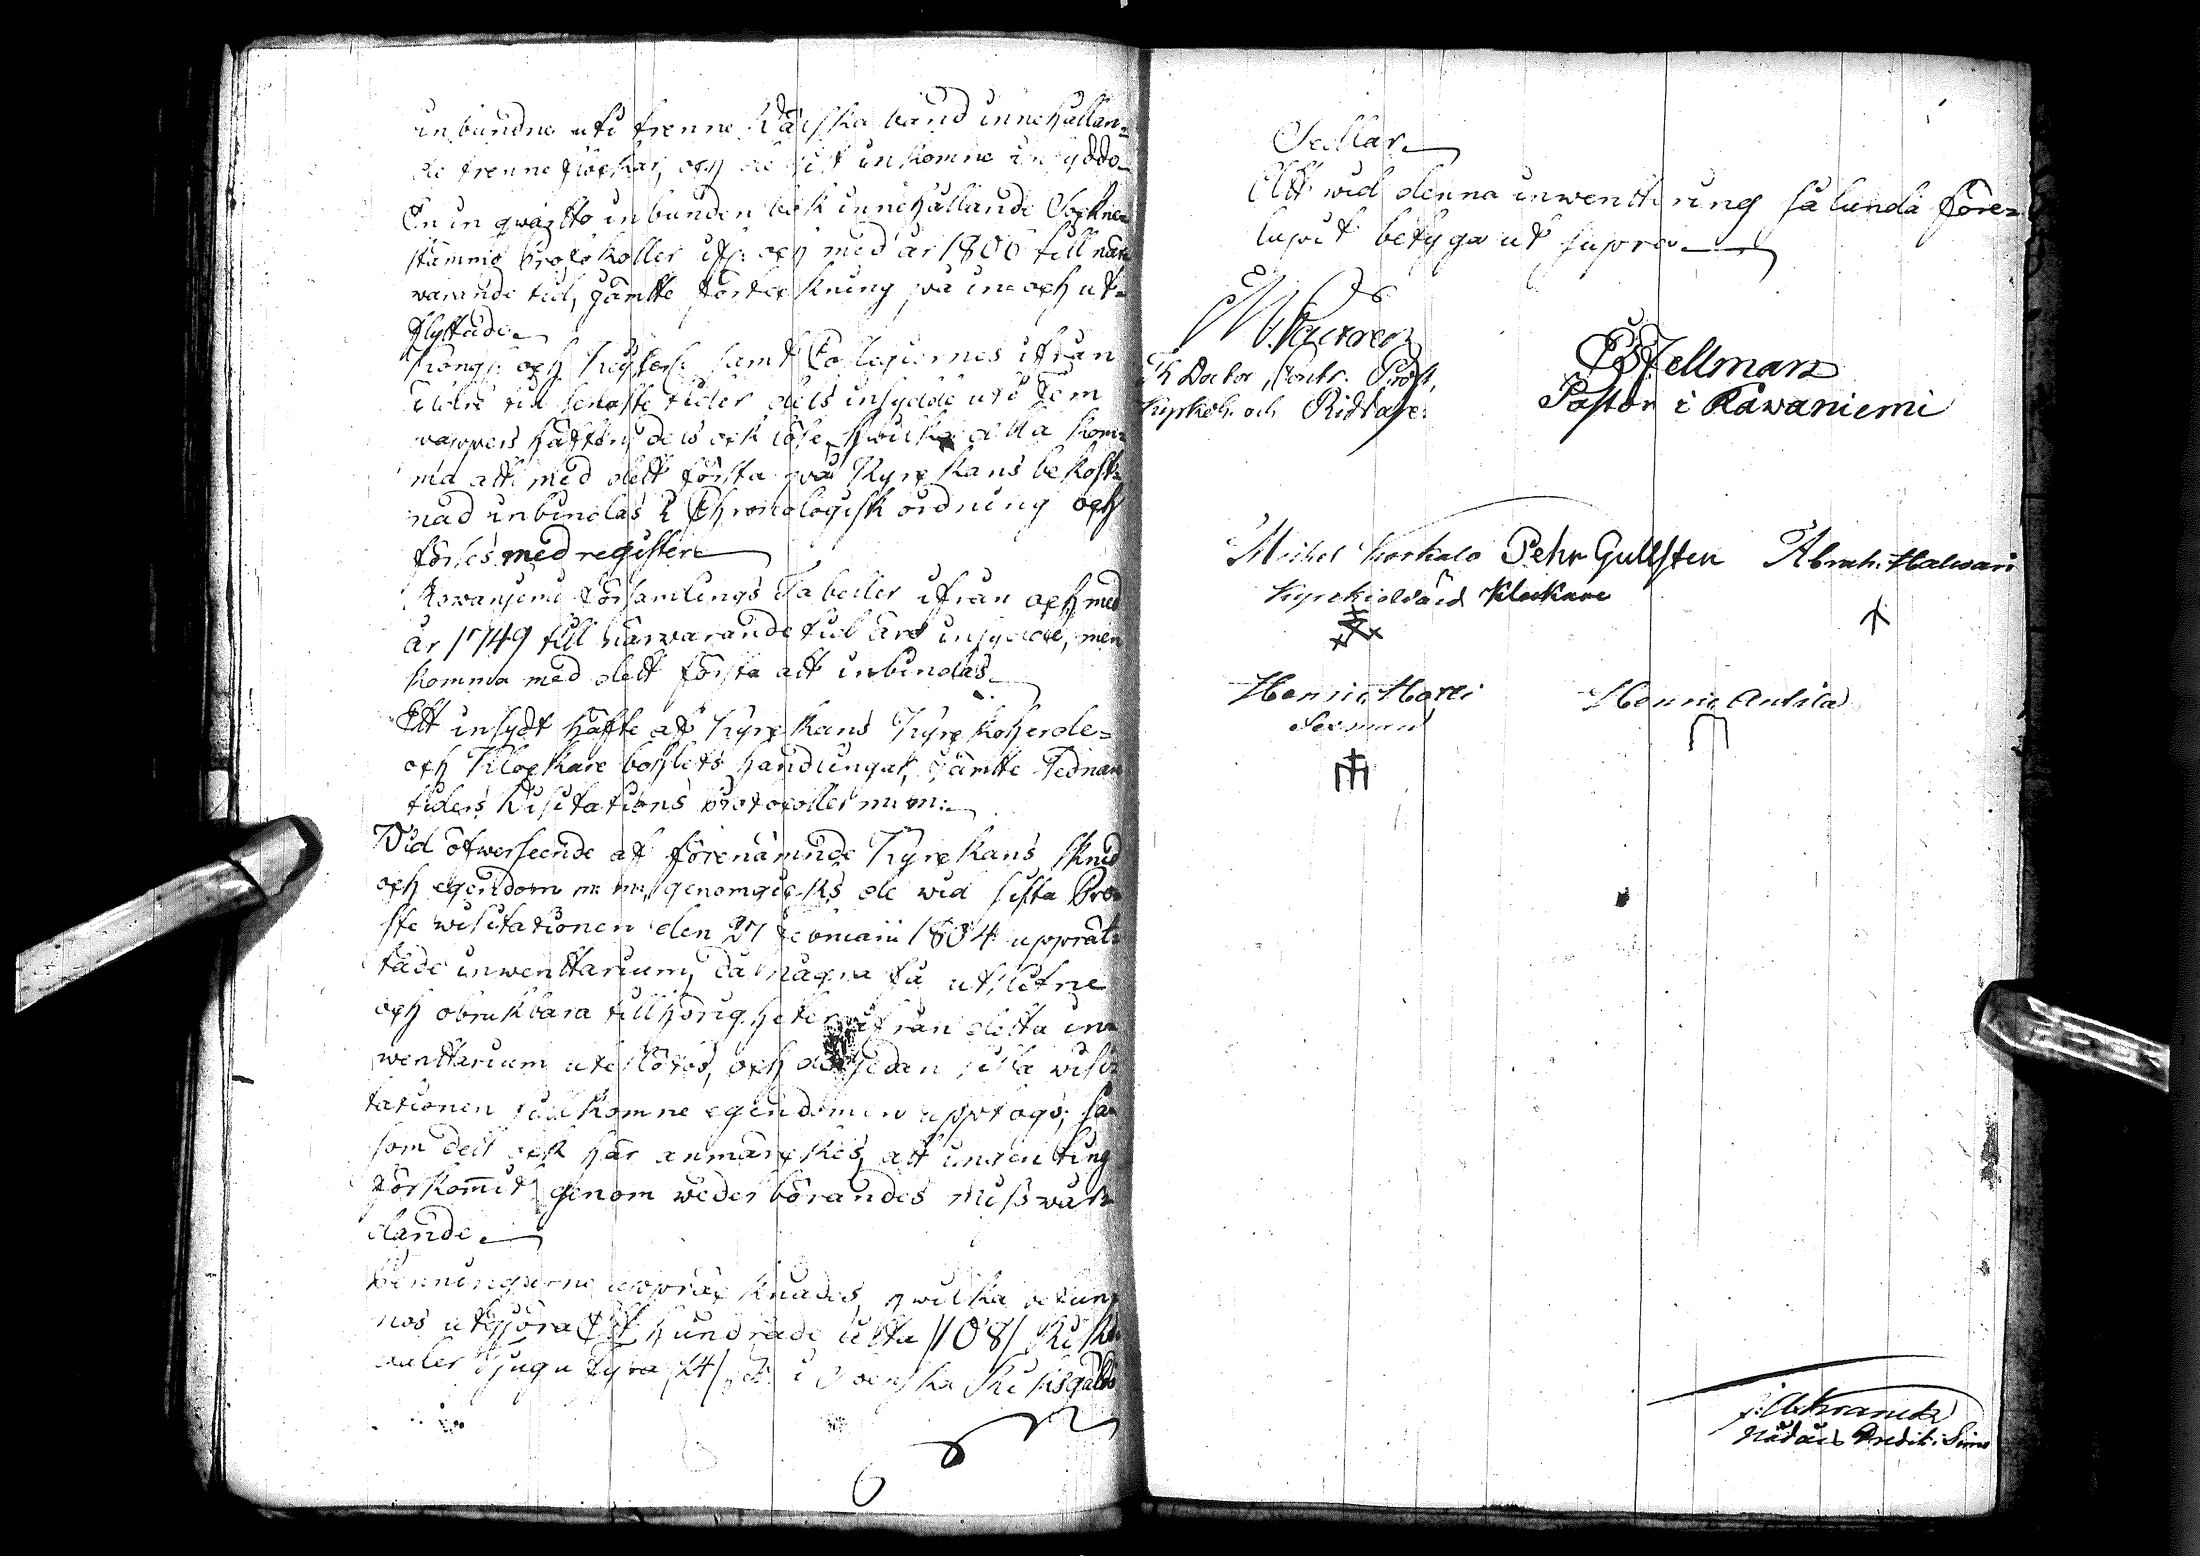 inbundne uti trenne Räiska band innehållan=
de trenne flockar, och de sist inkomne insydda
En in qwartto inbunden bok innehållande Sockne=
stämmo Protokoller ifr: och med år 1800 till när=
warande tid, jämtte förteckning på in= och ut=
flyttade
Kongl: och Keyserl: samt Collegiernes ifrån
äldre till senaste tider dels insydde uti Fem
pappers häften, dels ock löse, hwilka alla kom=
ma att med dett första på Kyrckans bekost=
nad inbindas i Chronologisk ordning och
förses med register
Rowaniemi församlings Tabeller ifrån och med
år 1749 till närwarande tid äro insydde, men
komma med dett första att inbindas
Ett insydt häfte af Kyrckans Kyrckoherde=
och Klockare bohlets handlingar, jämtte Fednare
tiders Visitations protocoller m: m:
Wid öfwerseende af förenämnde Kyrckans skrud
och egendom m: m: genomgicks de wid sista Pro=
ste wisitationen den 27 Februarii 1804 upprät=
tade inwenttarium, då några få utslitne
och obrukbara tillhörigheter ifrån detta in=
wenttarium uteslötos, och de sedan sista wisi=
tationen tillkomne egendomen upptogs; så=
som dett ock här anmärckes, att ingen ting
förkommit genom wederbörandes misswår=
dande
Penningarne uppräcknades, hwilka befun=
nos utgjöra Ett hundrade åtta /108/ Riks
daler tjugu fyra /24/ i Swenska Riksgälds
Sedlar
Att wid denna inwenttering sålunda före=
lupit betyga ut supra
Th Doctor, Contr. Prost,
Kyrkoh. och Riddare.
Fellman
Pastor i Råwaniemi
Michel Korkalo Pehr Gullsten Abrah. Halwari
Kyrckiowärd Klockare
Henric
Sexman
Henric Antila